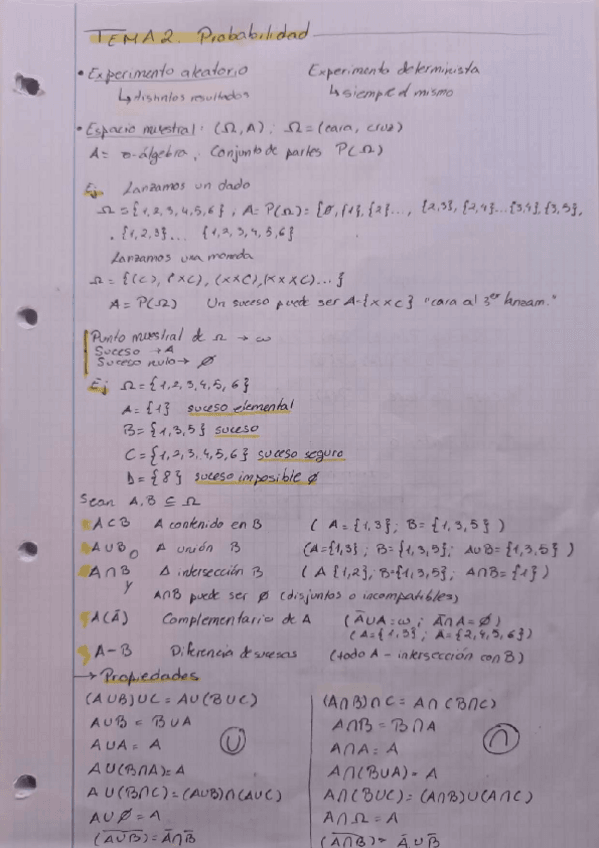 TEMA 2. Probabilidad
• Experimento aleatorio Experimento determinista
↳ distintos resultados ↳ siempre el mismo
• Espacio muestral: (Ω, A); Ω = (cara, cruz)
A = σ-álgebra, Conjunto de partes P(Ω)
Ej Lanzamos un dado
Ω = {1, 2, 3, 4, 5, 6}, A = P(Ω) = {∅, {1}, {2}..., {2,3}, {2,4}...{3,4}, {3,5},
{1,2,3}... {1,2,3,4,5,6}
Lanzamos una moneda
Ω = {(C), (XC), (XXC), (XXXC)...}
A = P(Ω) Un suceso puede ser A = {XXC} "cara al 3er lanzam."
Punto muestral de Ω → ω
Suceso → A
Suceso nulo → ∅
Ej Ω = {1,2,3,4,5,6}
A = {1} suceso elemental
B = {1,3,5} suceso
C = {1,2,3,4,5,6} suceso seguro
D = {8} suceso imposible ∅
Sean A, B ⊆ Ω
A ⊂ B A contenido en B (A = {1,3}; B = {1,3,5})
A ∪ B o A unión B (A = {1,3}; B = {1,3,5}; A∪B = {1,3,5})
A ∩ B y A intersección B (A {1,2}; B = {1,3,5}; A∩B = {1})
A∩B puede ser ∅ (disjuntos o incompatibles)
A(Ā) Complementario de A (Ā∪A = ω; Ā∩A = ∅)
(A = {1,3}; Ā = {2,4,5,6})
A - B Diferencia de sucesos (todo A - intersección con B)
→ Propiedades
(A∪B)∪C = A∪(B∪C)
A∪B = B∪A
A∪A = A ∪
A∪(B∩A) = A
A∪(B∩C) = (A∪B)∩(A∪C)
A∪∅ = A
(A∪B)‾ = Ā∩B̄
(A∩B)∩C = A∩(B∩C)
A∩B = B∩A
A∩A = A ∩
A∩(B∪A) = A
A∩(B∪C) = (A∩B)∪(A∩C)
A∩Ω = A
(A∩B)‾ = Ā∪B̄